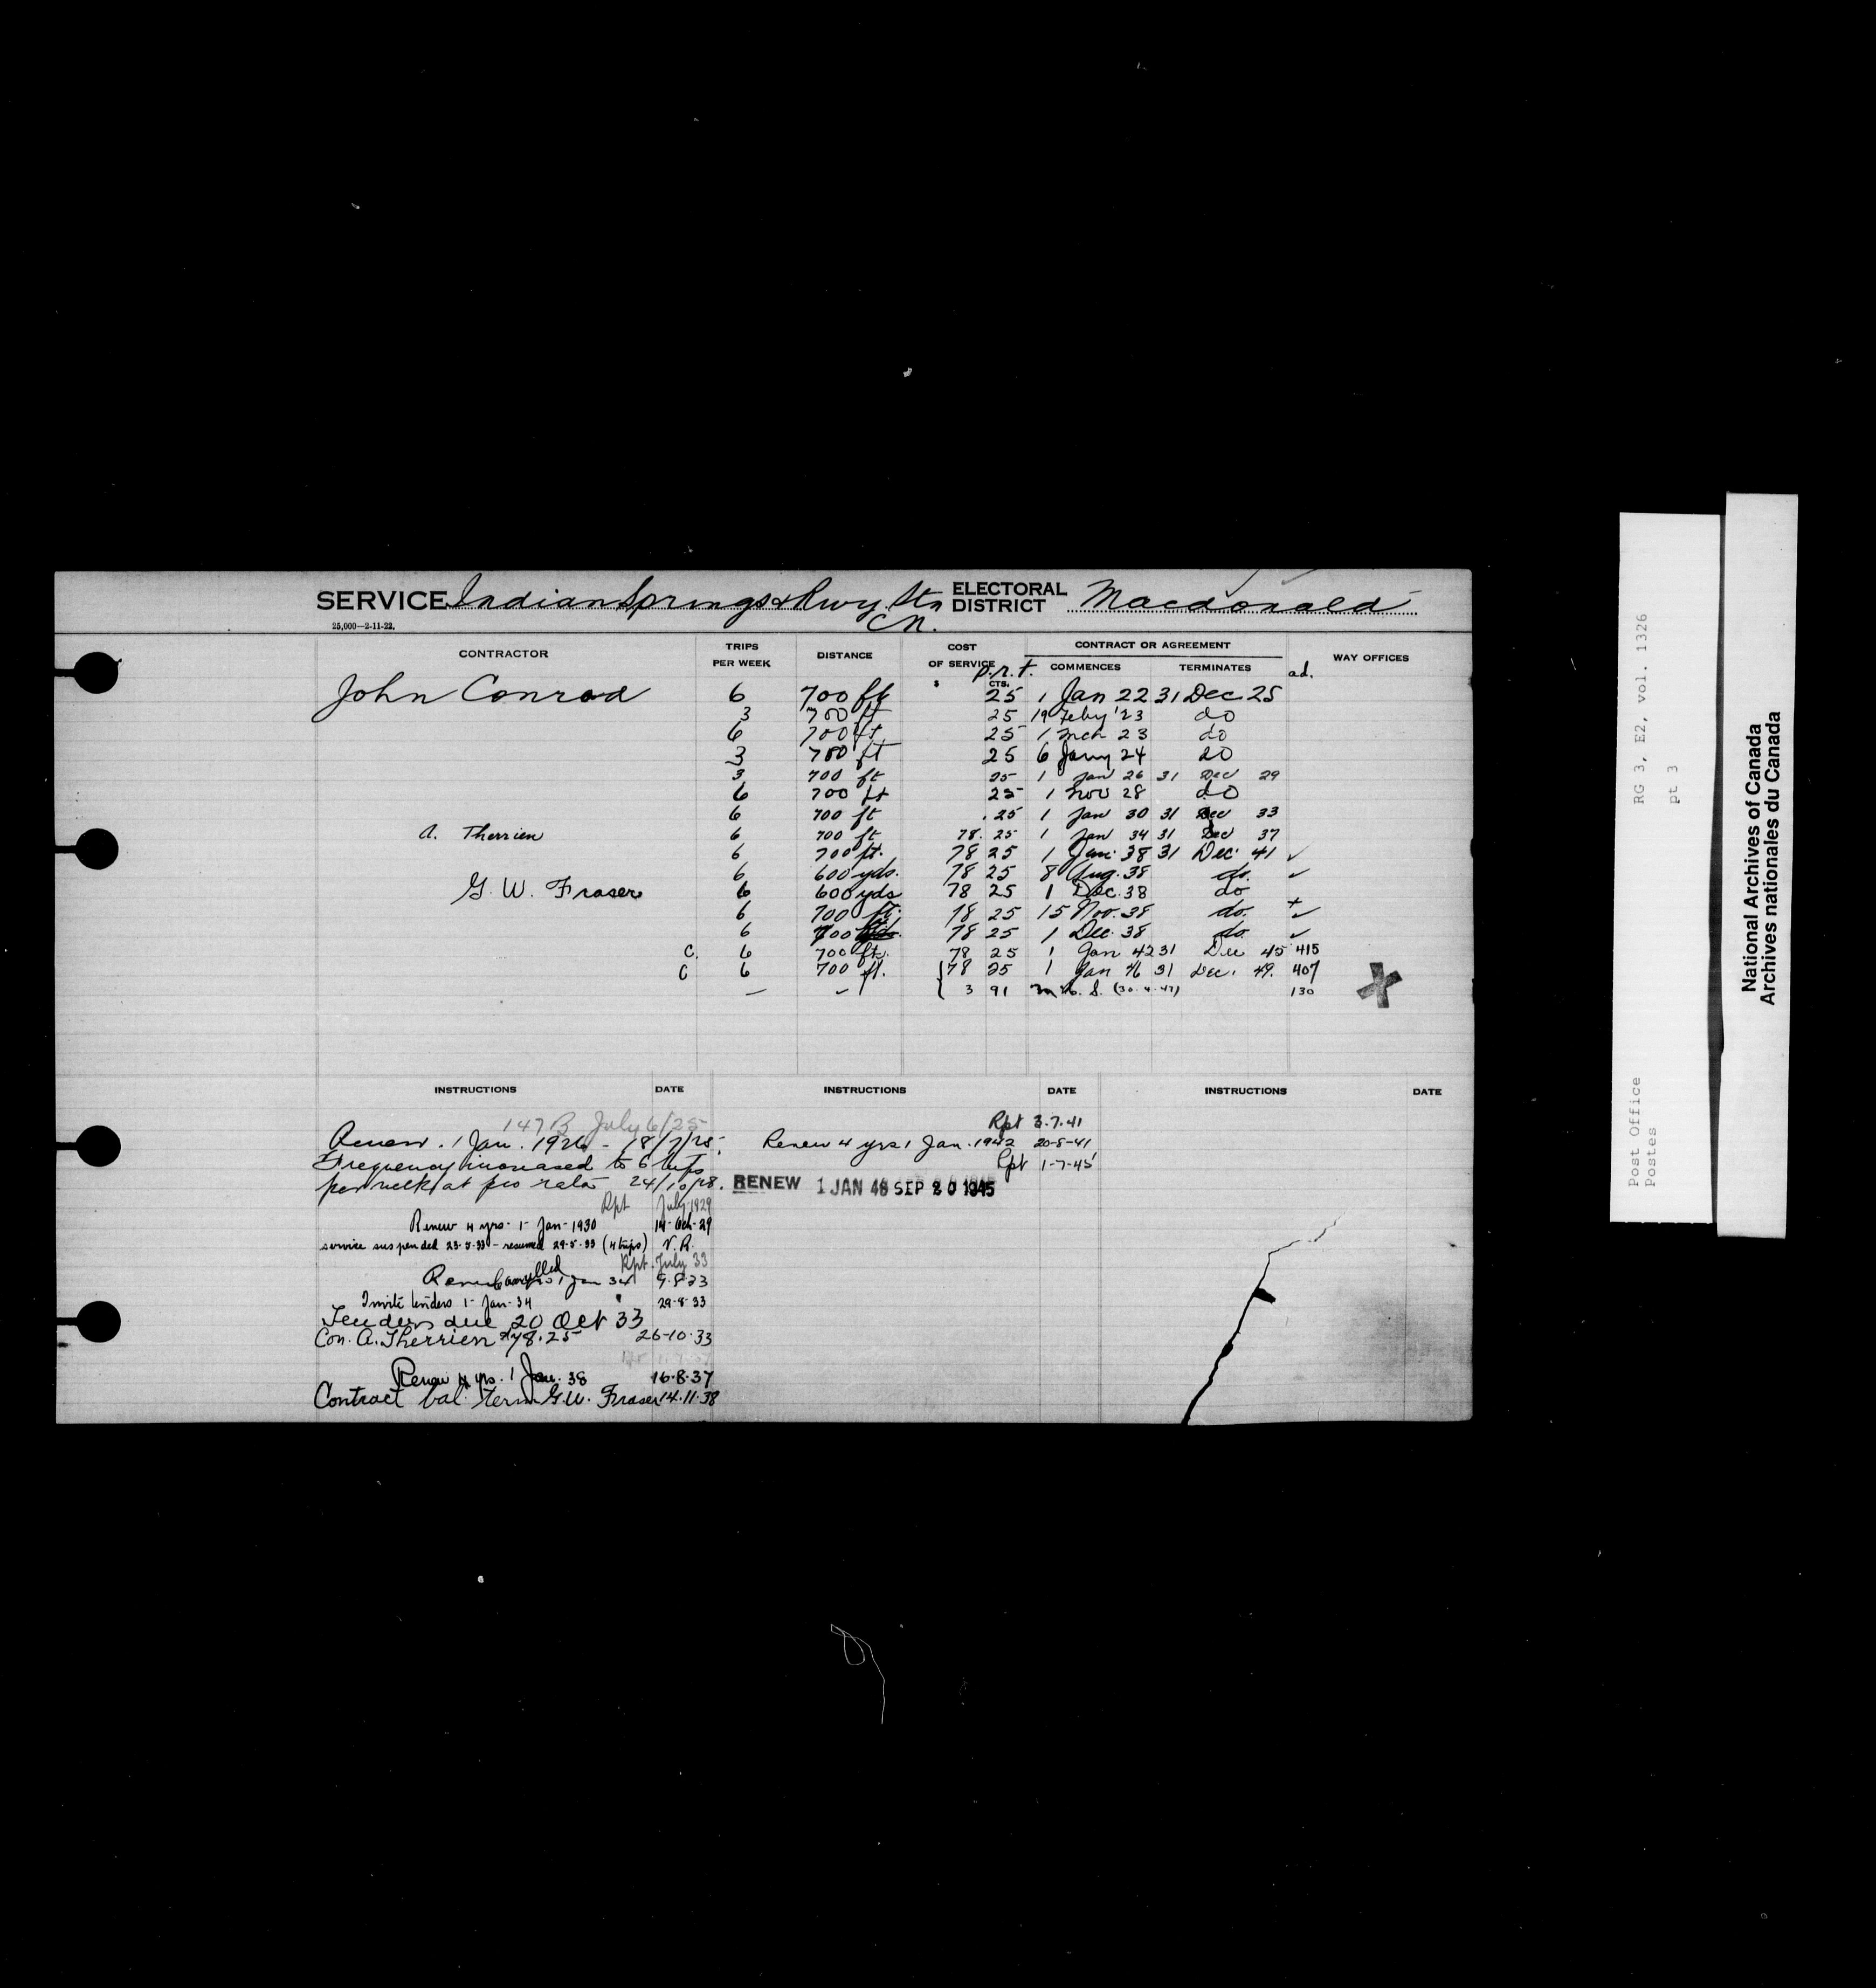 SERVICE Indian Springs & Rwy. Stn ELECTORAL DISTRICT Macdonald
25,000—2-11-22. C.N.
CONTRACTOR TRIPS PER WEEK DISTANCE COST OF SERVICE CONTRACT OR AGREEMENT WAY OFFICES
$ CTS. p.r.t. COMMENCES TERMINATES ad.
John Conrad 6 700 ft 25 1 Jan 22 31 Dec 25
3 700 ft 25 19 Feby '23 do
6 700 ft 25 1 Mch 23 do
3 700 ft 25 6 Jany 24 do
3 700 ft 25 1 Jan 26 31 Dec 29
6 700 ft 25 1 Nov 28 do
6 700 ft .25 1 Jan 30 31 Dec 33
A. Therrien 6 700 ft 78. 25 1 Jan 34 31 Dec 37
6 700 ft. 78 25 1 Jan. 38 31 Dec. 41 ✓
6 600 yds. 78 25 8 Aug. 38 do. ✓
G. W. Fraser 6 600 yds 78 25 1 Dec. 38 do
6 700 ft. 78 25 15 Nov. 38 do. + ✓
6 700 78 25 1 Dec. 38 do. ✓
C. 6 700 ft. 78 25 1 Jan 42 31 Dec 45 415
C 6 700 ft. 78 25 1 Jan 46 31 Dec. 49. 407
— ✓ 3 91 S. (30.4.47) 130
INSTRUCTIONS DATE INSTRUCTIONS DATE INSTRUCTIONS DATE
147 B July 6/25
Renew. 1 Jan. 1926 - 18/7/25.
Frequency increased to 6 trips
per week at pro rata 24/10/28.
Rpt July-1929
Renew 4 yrs. 1- Jan-1930 14-Oct-29
service suspended 23.5.33 - resumed 29.5.33 (4 trips) V.R.
Rpt. July 33
Renew Cancelled 1 Jan 34 9.8.33
Invite tenders 1- Jan-34 29-8-33
Tenders due 20 Oct 33
Con. A. Therrien $78.25 26-10-33
Renew 4 yrs. 1 Jan. 38 16.8.37
Contract bal. term G.W. Fraser 14.11.38
Rpt 3.7.41
Renew 4 yrs 1 Jan. 1942 20-8-41
Rpt 1-7-45
RENEW 1 JAN 46 SEP 20 1945
Post Office RG 3, E2, vol. 1326
Postes pt 3
National Archives of Canada
Archives nationales du Canada